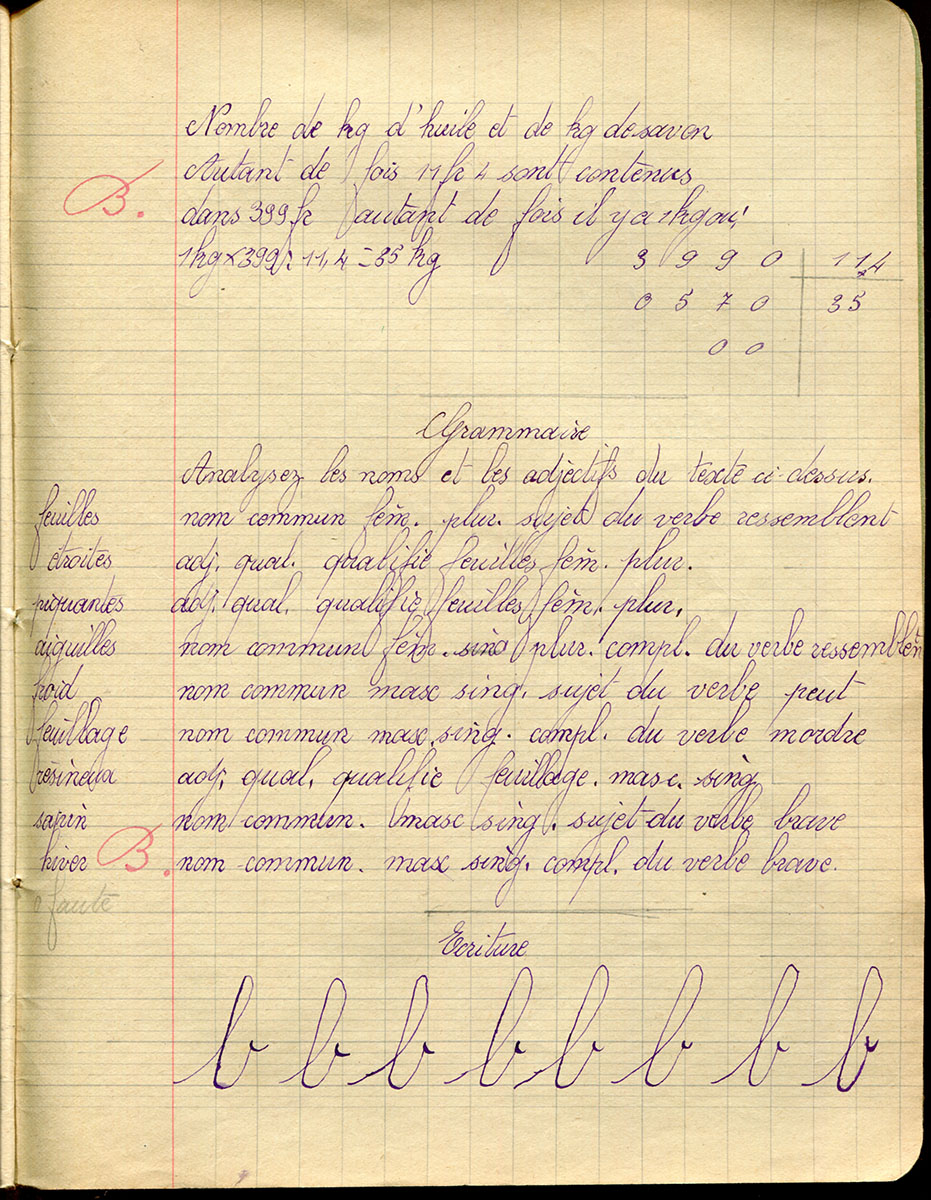 Nombre de kg d'huile et de kg de savon
Autant de fois 11 fr 4 sont contenus
B.
dans 399 fr autant de fois il y a 1 kg ou;
1 kg × 399 : 11,4 = 35 kg
3 9 9 0 11,4
0 5 7 0 35
0 0
Grammaire
Analysez les noms et les adjectifs du texte ci-dessus.
feuilles nom commun fém. plur. sujet du verbe ressemblent
étroites adj. qual. qualifie feuilles fém. plur.
piquantes adj. qual. qualifie feuilles fém. plur.
aiguilles nom commun fém. sing plur. compl. du verbe ressemblen
froid nom commun masc sing. sujet du verbe peut
feuillage nom commun masc. sing. compl. du verbe mordre
resineux adj. qual. qualifie feuillage. masc. sing
sapin nom commun. masc sing. sujet du verbe brave
hiver B. nom commun. masc sing. compl. du verbe brave.
0 faute
Ecriture
b b b b b b b b